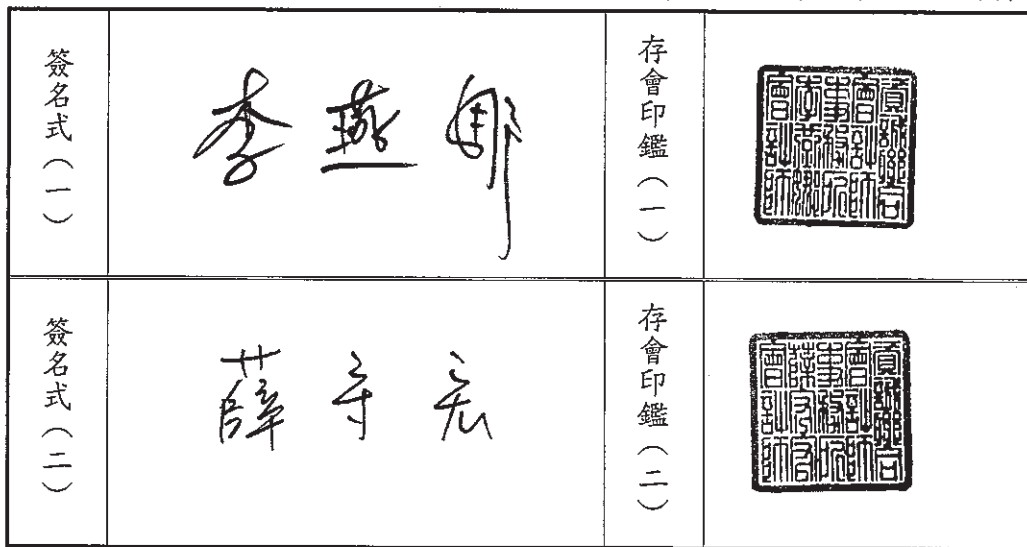 簽名式（一）
李燕娜
存會印鑑（一）
資誠聯合
會計師
事務所
李燕娜
會計師
簽名式（二）
薛守宏
存會印鑑（二）
資誠聯合
會計師
事務所
薛守宏
會計師